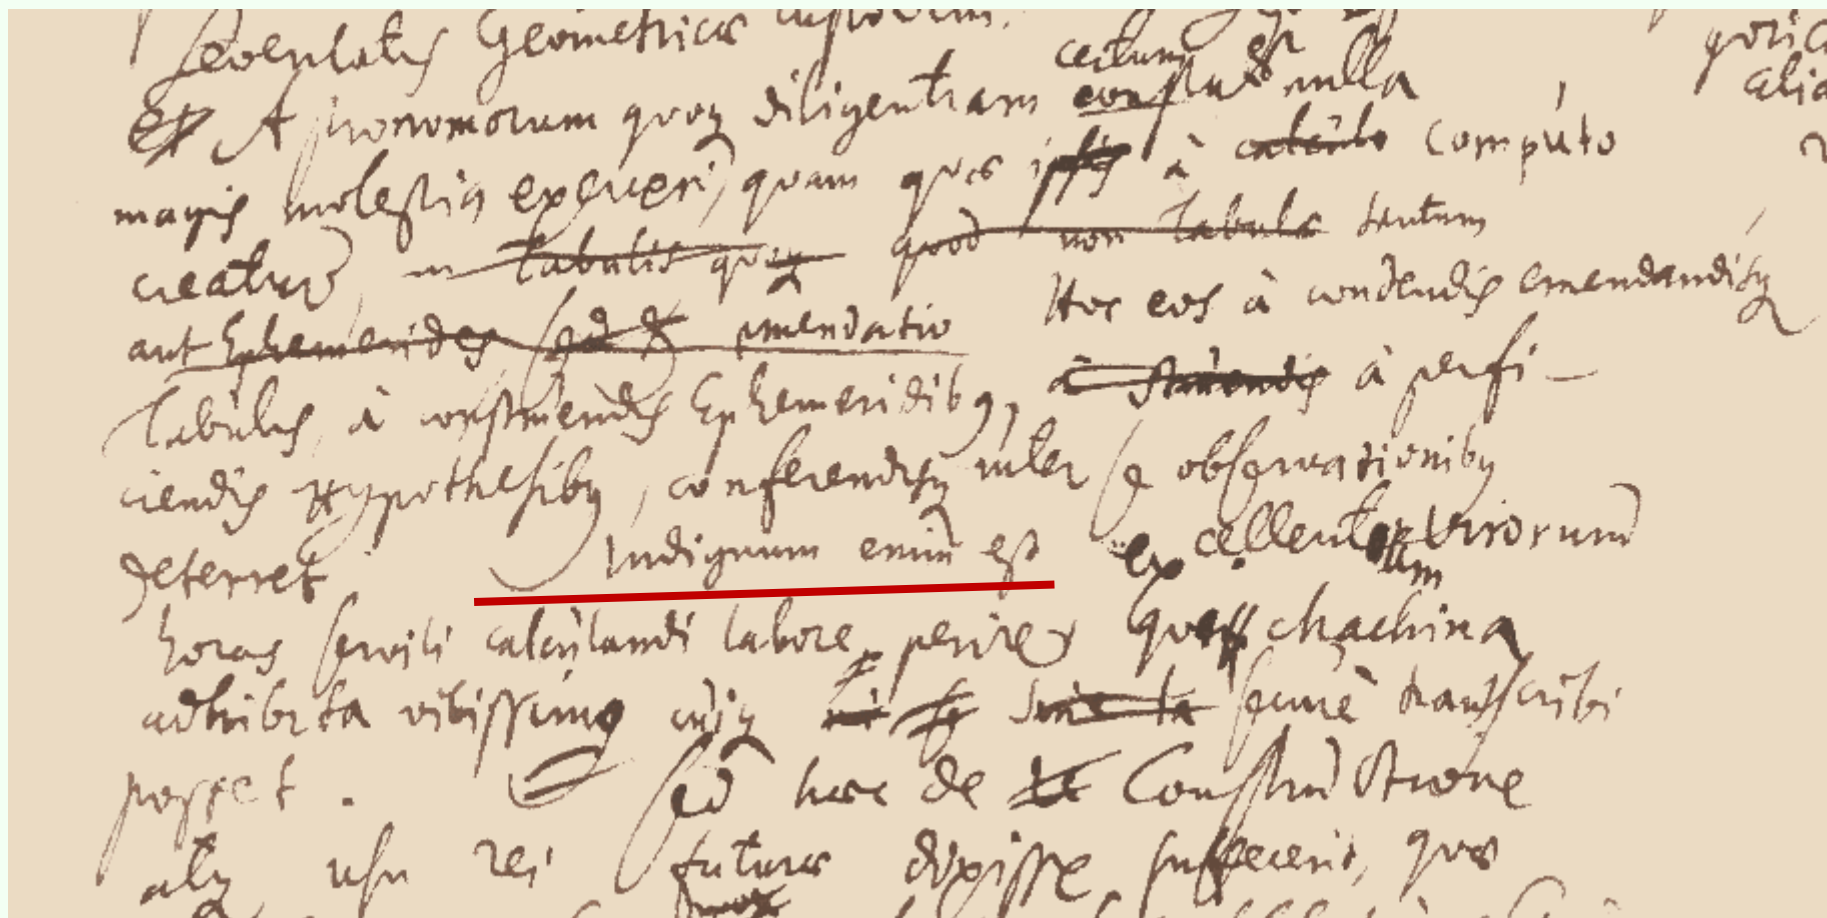 Geometricas
certum est
Astronomorum quoq diligentiam constat nulla
magis molestia exerceri, quam quas ipsis à calculo computo
creatur, in tabulis quoq quod non tabulas tantum
aut Ephemerides sed & emendatio Hoc eos à condendis emendandisq
Tabulis, à construendis Ephemeridibq, à à perfi-
ciendis Hypothesibq, conferendisq inter se observationibq
deterret Indignum enim est excellentium virorum
horas servili calculandi labore perire, Machina
adhibita vilissimo cuiq transcribi
posset. Sed haec de Constructione
atq usu rei futuras dixisse suffecerit, quas